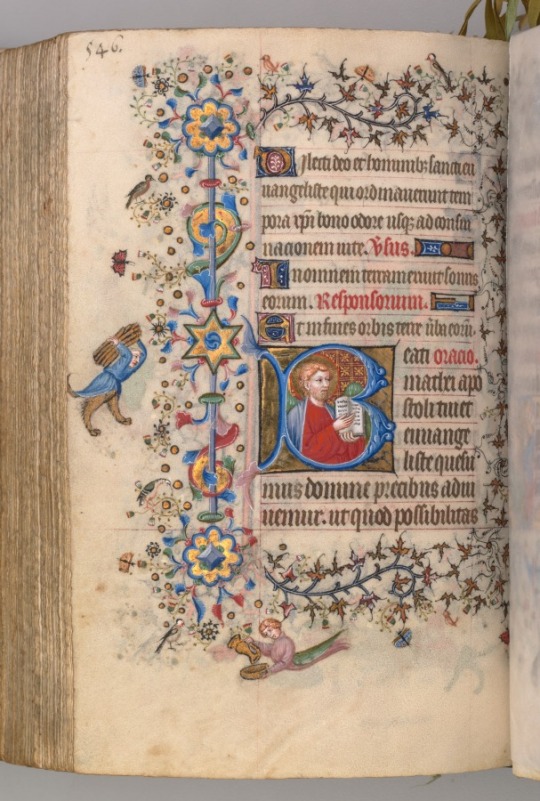 546.
Dilecti deo et hominibus sancti eu
uangeliste qui ordinauerunt tem
pora xpi bono odore usq; ad consu
macionem uite. Vsus.
In omnem terram exiuit sonus
eorum. Responsorium.
Et in fines orbis terre uba eorū.
Beati oracio.
mathei apo
stoli tui et
euuange
liste quesu
mus domine precibus adiu
uemur. ut quod possibilitas